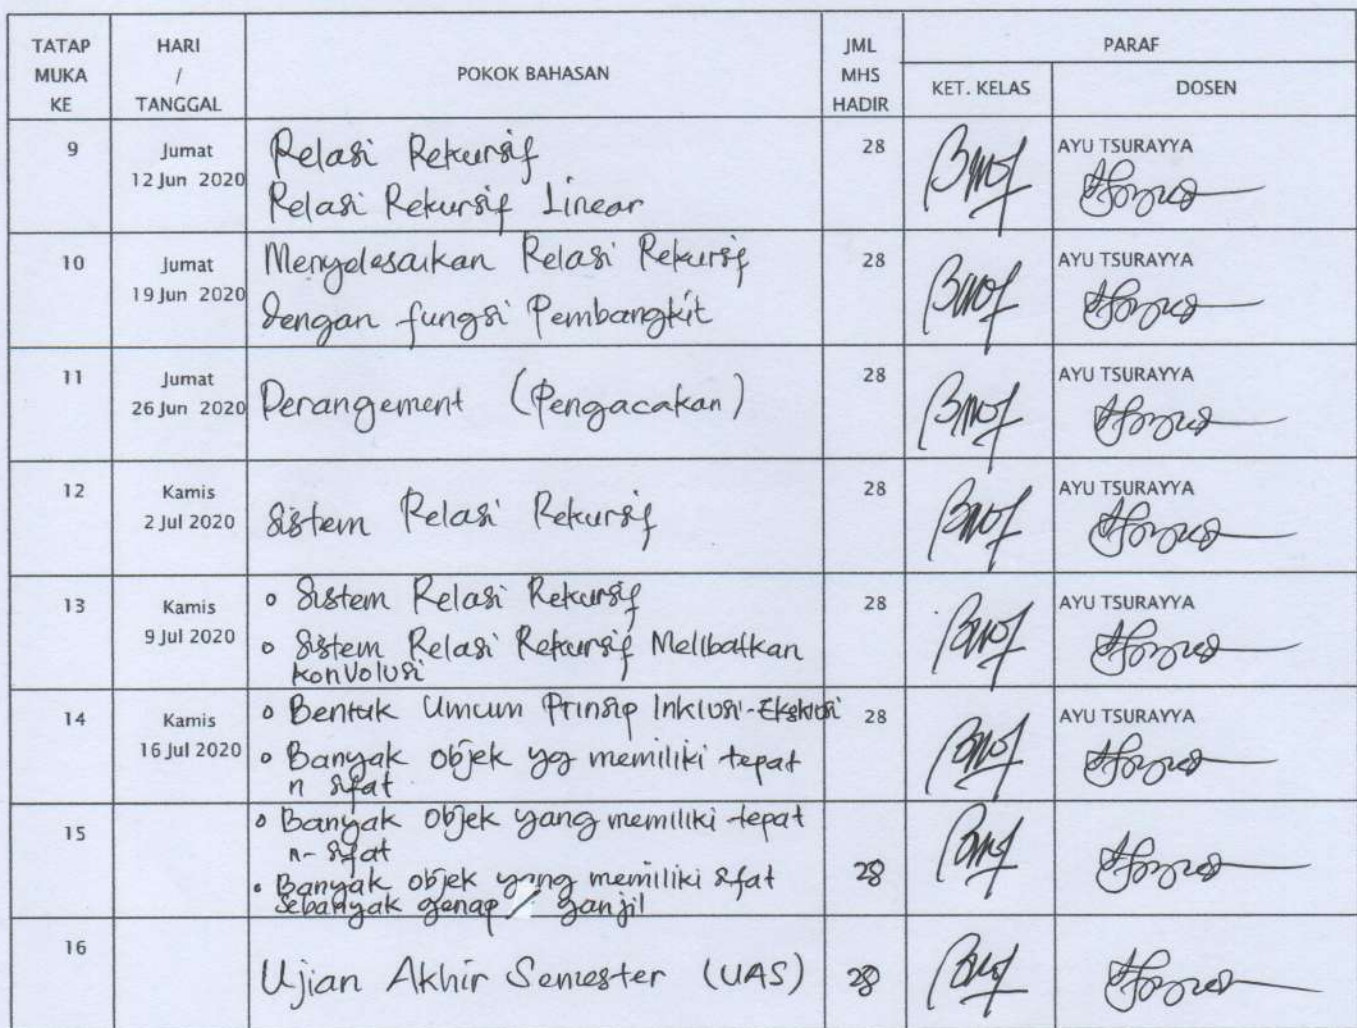 TATAP MUKA KE | HARI / TANGGAL | POKOK BAHASAN | JML MHS HADIR | PARAF
KET. KELAS | DOSEN
9 | Jumat 12 Jun 2020 | Relasi Rekursif | 28 | AYU TSURAYYA
Relasi Rekursif Linear
10 | Jumat 19 Jun 2020 | Menyelesaikan Relasi Rekursif | 28 | AYU TSURAYYA
dengan fungsi Pembangkit
11 | Jumat 26 Jun 2020 | Derangement (Pengacakan) | 28 | AYU TSURAYYA
12 | Kamis 2 Jul 2020 | Sistem Relasi Rekursif | 28 | AYU TSURAYYA
13 | Kamis 9 Jul 2020 | Sistem Relasi Rekursif | 28 | AYU TSURAYYA
Sistem Relasi Rekursif Melibatkan
konvolusi
14 | Kamis 16 Jul 2020 | Bentuk Umum Prinsip Inklusi-Eksklusi | 28 | AYU TSURAYYA
Banyak objek yg memiliki tepat
n sifat
15 | Banyak objek yang memiliki tepat
n- sifat
Banyak objek yang memiliki sifat | 28
sebanyak genap / ganjil
16 | Ujian Akhir Semester (UAS) | 28